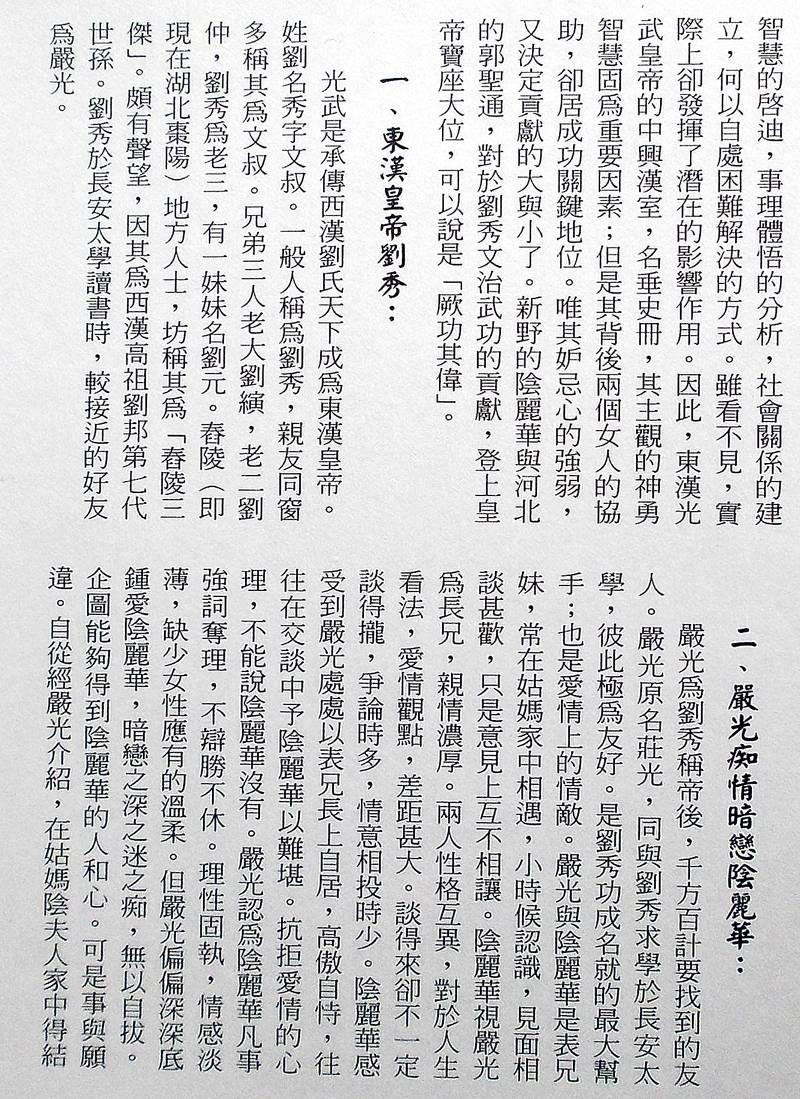 智慧的啓迪，事理體悟的分析，社會關係的建
立，何以自處困難解決的方式。雖看不見，實
際上卻發揮了潛在的影響作用。因此，東漢光
武皇帝的中興漢室，名垂史冊，其主觀的神勇
智慧固爲重要因素；但是其背後兩個女人的協
助，卻居成功關鍵地位。唯其妒忌心的強弱，
又決定貢獻的大與小了。新野的陰麗華與河北
的郭聖通，對於劉秀文治武功的貢獻，登上皇
帝寶座大位，可以說是「厥功其偉」。
一、東漢皇帝劉秀：
光武是承傳西漢劉氏天下成爲東漢皇帝。
姓劉名秀字文叔。一般人稱爲劉秀，親友同窗
多稱其爲文叔。兄弟三人老大劉縯，老二劉
仲，劉秀爲老三，有一妹妹名劉元。舂陵（即
現在湖北棗陽）地方人士，坊稱其爲「舂陵三
傑」。頗有聲望，因其爲西漢高祖劉邦第七代
世孫。劉秀於長安太學讀書時，較接近的好友
爲嚴光。
二、嚴光痴情暗戀陰麗華：
嚴光爲劉秀稱帝後，千方百計要找到的友
人。嚴光原名莊光，同與劉秀求學於長安太
學，彼此極爲友好。是劉秀功成名就的最大幫
手；也是愛情上的情敵。嚴光與陰麗華是表兄
妹，常在姑媽家中相遇，小時候認識，見面相
談甚歡，只是意見上互不相讓。陰麗華視嚴光
爲長兄，親情濃厚。兩人性格互異，對於人生
看法，愛情觀點，差距甚大。談得來卻不一定
談得攏，爭論時多，情意相投時少。陰麗華感
受到嚴光處處以表兄長上自居，高傲自恃，往
往在交談中予陰麗華以難堪。抗拒愛情的心
理，不能說陰麗華沒有。嚴光認爲陰麗華凡事
強詞奪理，不辯勝不休。理性固執，情感淡
薄，缺少女性應有的溫柔。但嚴光偏偏深深底
鍾愛陰麗華，暗戀之深之迷之痴，無以自拔。
企圖能夠得到陰麗華的人和心。可是事與願
違。自從經嚴光介紹，在姑媽陰夫人家中得結